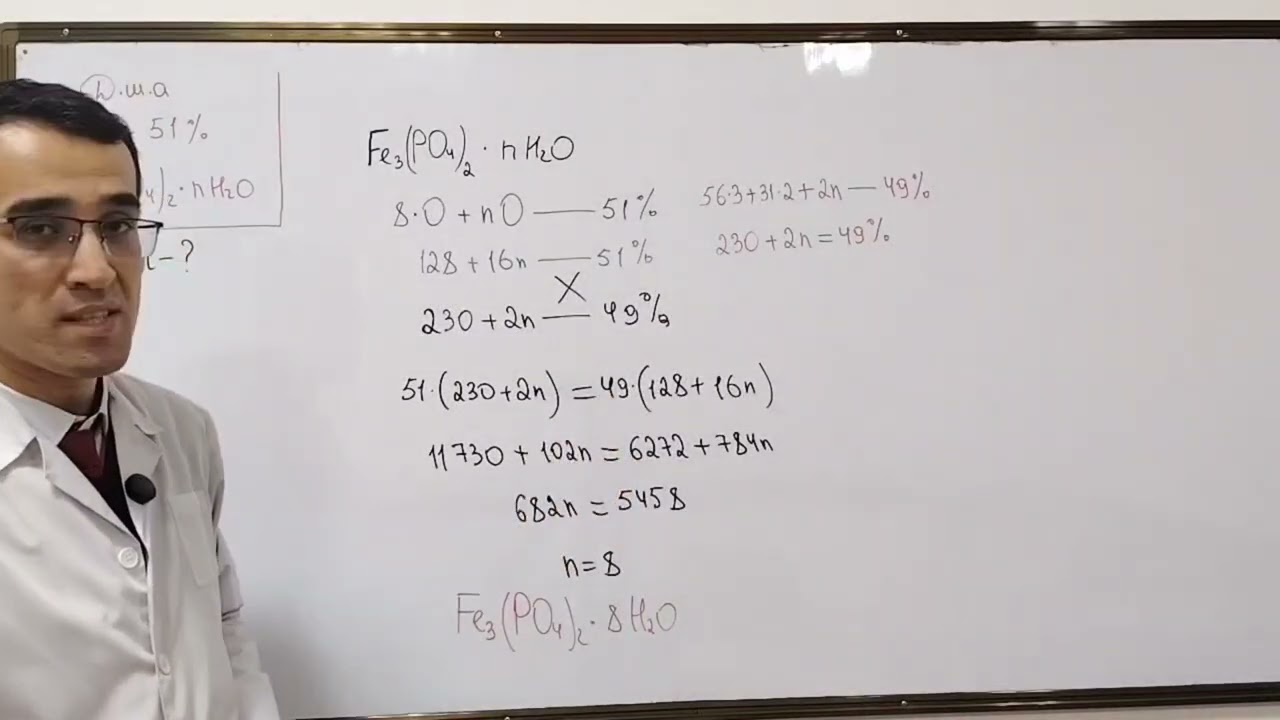 D.ш.а
51%
4)₂·nH₂O
-?
Fe₃(PO₄)₂·nH₂O
8·O+nO — 51%
128+16n — 51%
X
230+2n — 49%
56·3+31·2+2n — 49%
230+2n=49%
51·(230+2n)=49·(128+16n)
11730+102n=6272+784n
682n=5458
n=8
Fe₃(PO₄)₂·8H₂O